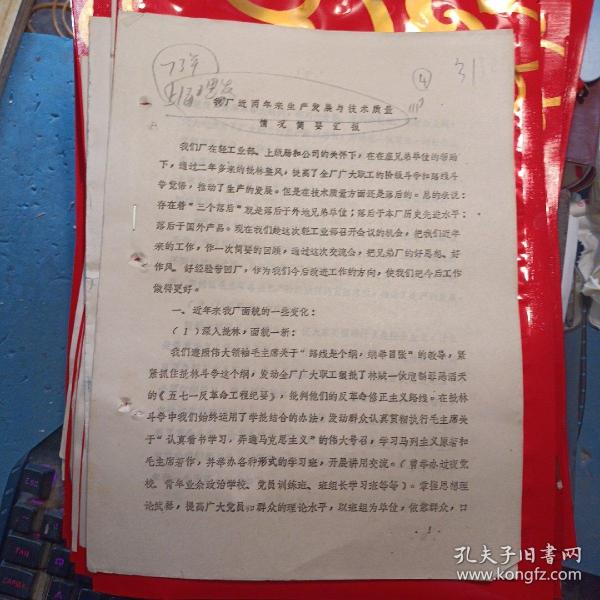 73年
④
我厂近两年来生产发展与技术质量
情况简要汇报
我们厂在轻工业部、上级局和公司的关怀下，在在座兄弟单位的帮助
下，通过二年多来的批林整风，提高了全厂广大职工的阶级斗争和路线斗
争觉悟，推动了生产的发展。但是在技术质量方面还是落后的。总的来说：
存在着“三个落后”就是落后于外地兄弟单位；落后于本厂历史先进水平；
落后于国外产品。现在我们趁这次轻工业部召开会议的机会，把我们近年
来的工作，作一次简要的回顾，通过这次交流会，把兄弟厂的好思想、好
作风、好经验带回厂，作为我们今后改进工作的方向，使我们把今后工作
做得更好。
一、近年来我厂面貌的一些变化：
（1）深入批林，面貌一新：
我们遵照伟大领袖毛主席关于“路线是个纲，纲举目张”的教导，紧
紧抓住批林斗争这个纲，发动全厂广大职工狠批了林贼一伙炮制罪恶滔天
的《五七一反革命工程纪要》，批判他们的反革命修正主义路线。在批林
斗争中我们始终运用了学批结合的办法，发动群众认真贯彻执行毛主席关
于“认真看书学习，弄通马克思主义”的伟大号召，学习马列主义原著和
毛主席著作，并举办各种形式的学习班，开展讲用交流。（曾举办过夜党
校、青年业余政治学校、党员训练班、班组长学习班等等）。掌握思想理
论武器，提高广大党员和群众的理论水平，以班组为单位，依靠群众，口
·1·
孔夫子旧书网
www.kongfz.com